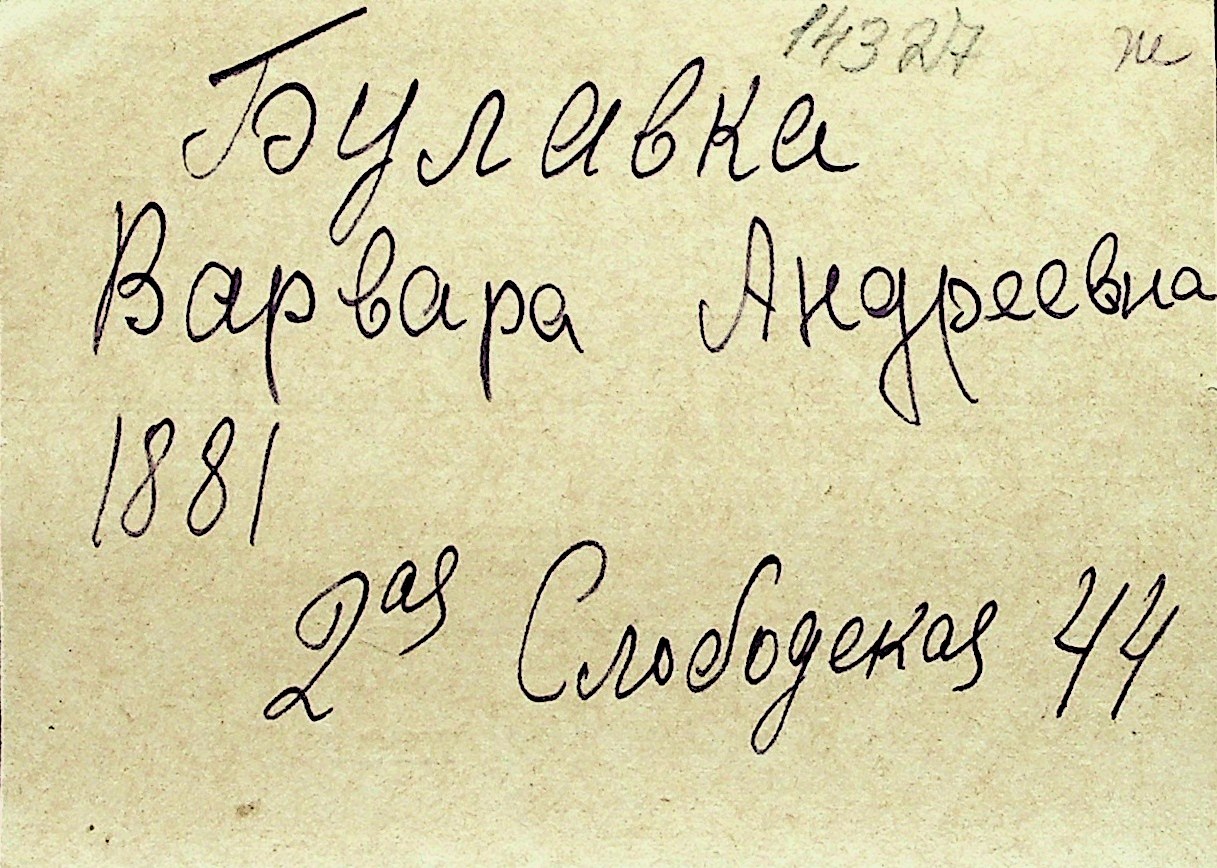 14327 ж
Булавка
Варвара Андреевна
1881
2ая Слободская 44